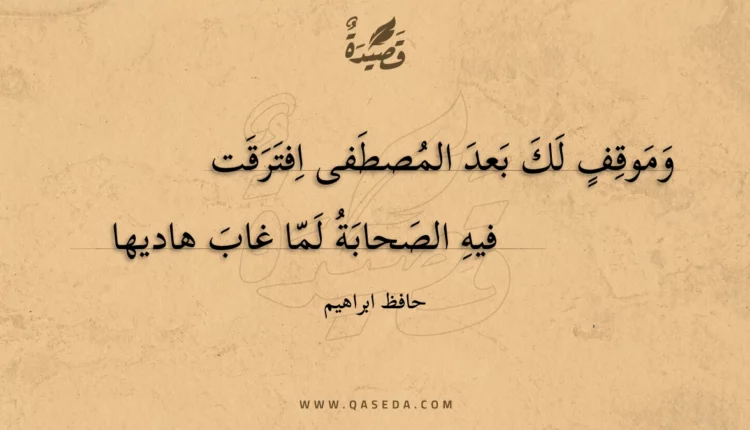 قَصِيْدَةٌ
وَمَوقِفٍ لَكَ بَعدَ المُصطَفى اِفتَرَقَت
فيهِ الصَحابَةُ لَمّا غابَ هاديها
حافظ ابراهيم
WWW.QASEDA.COM